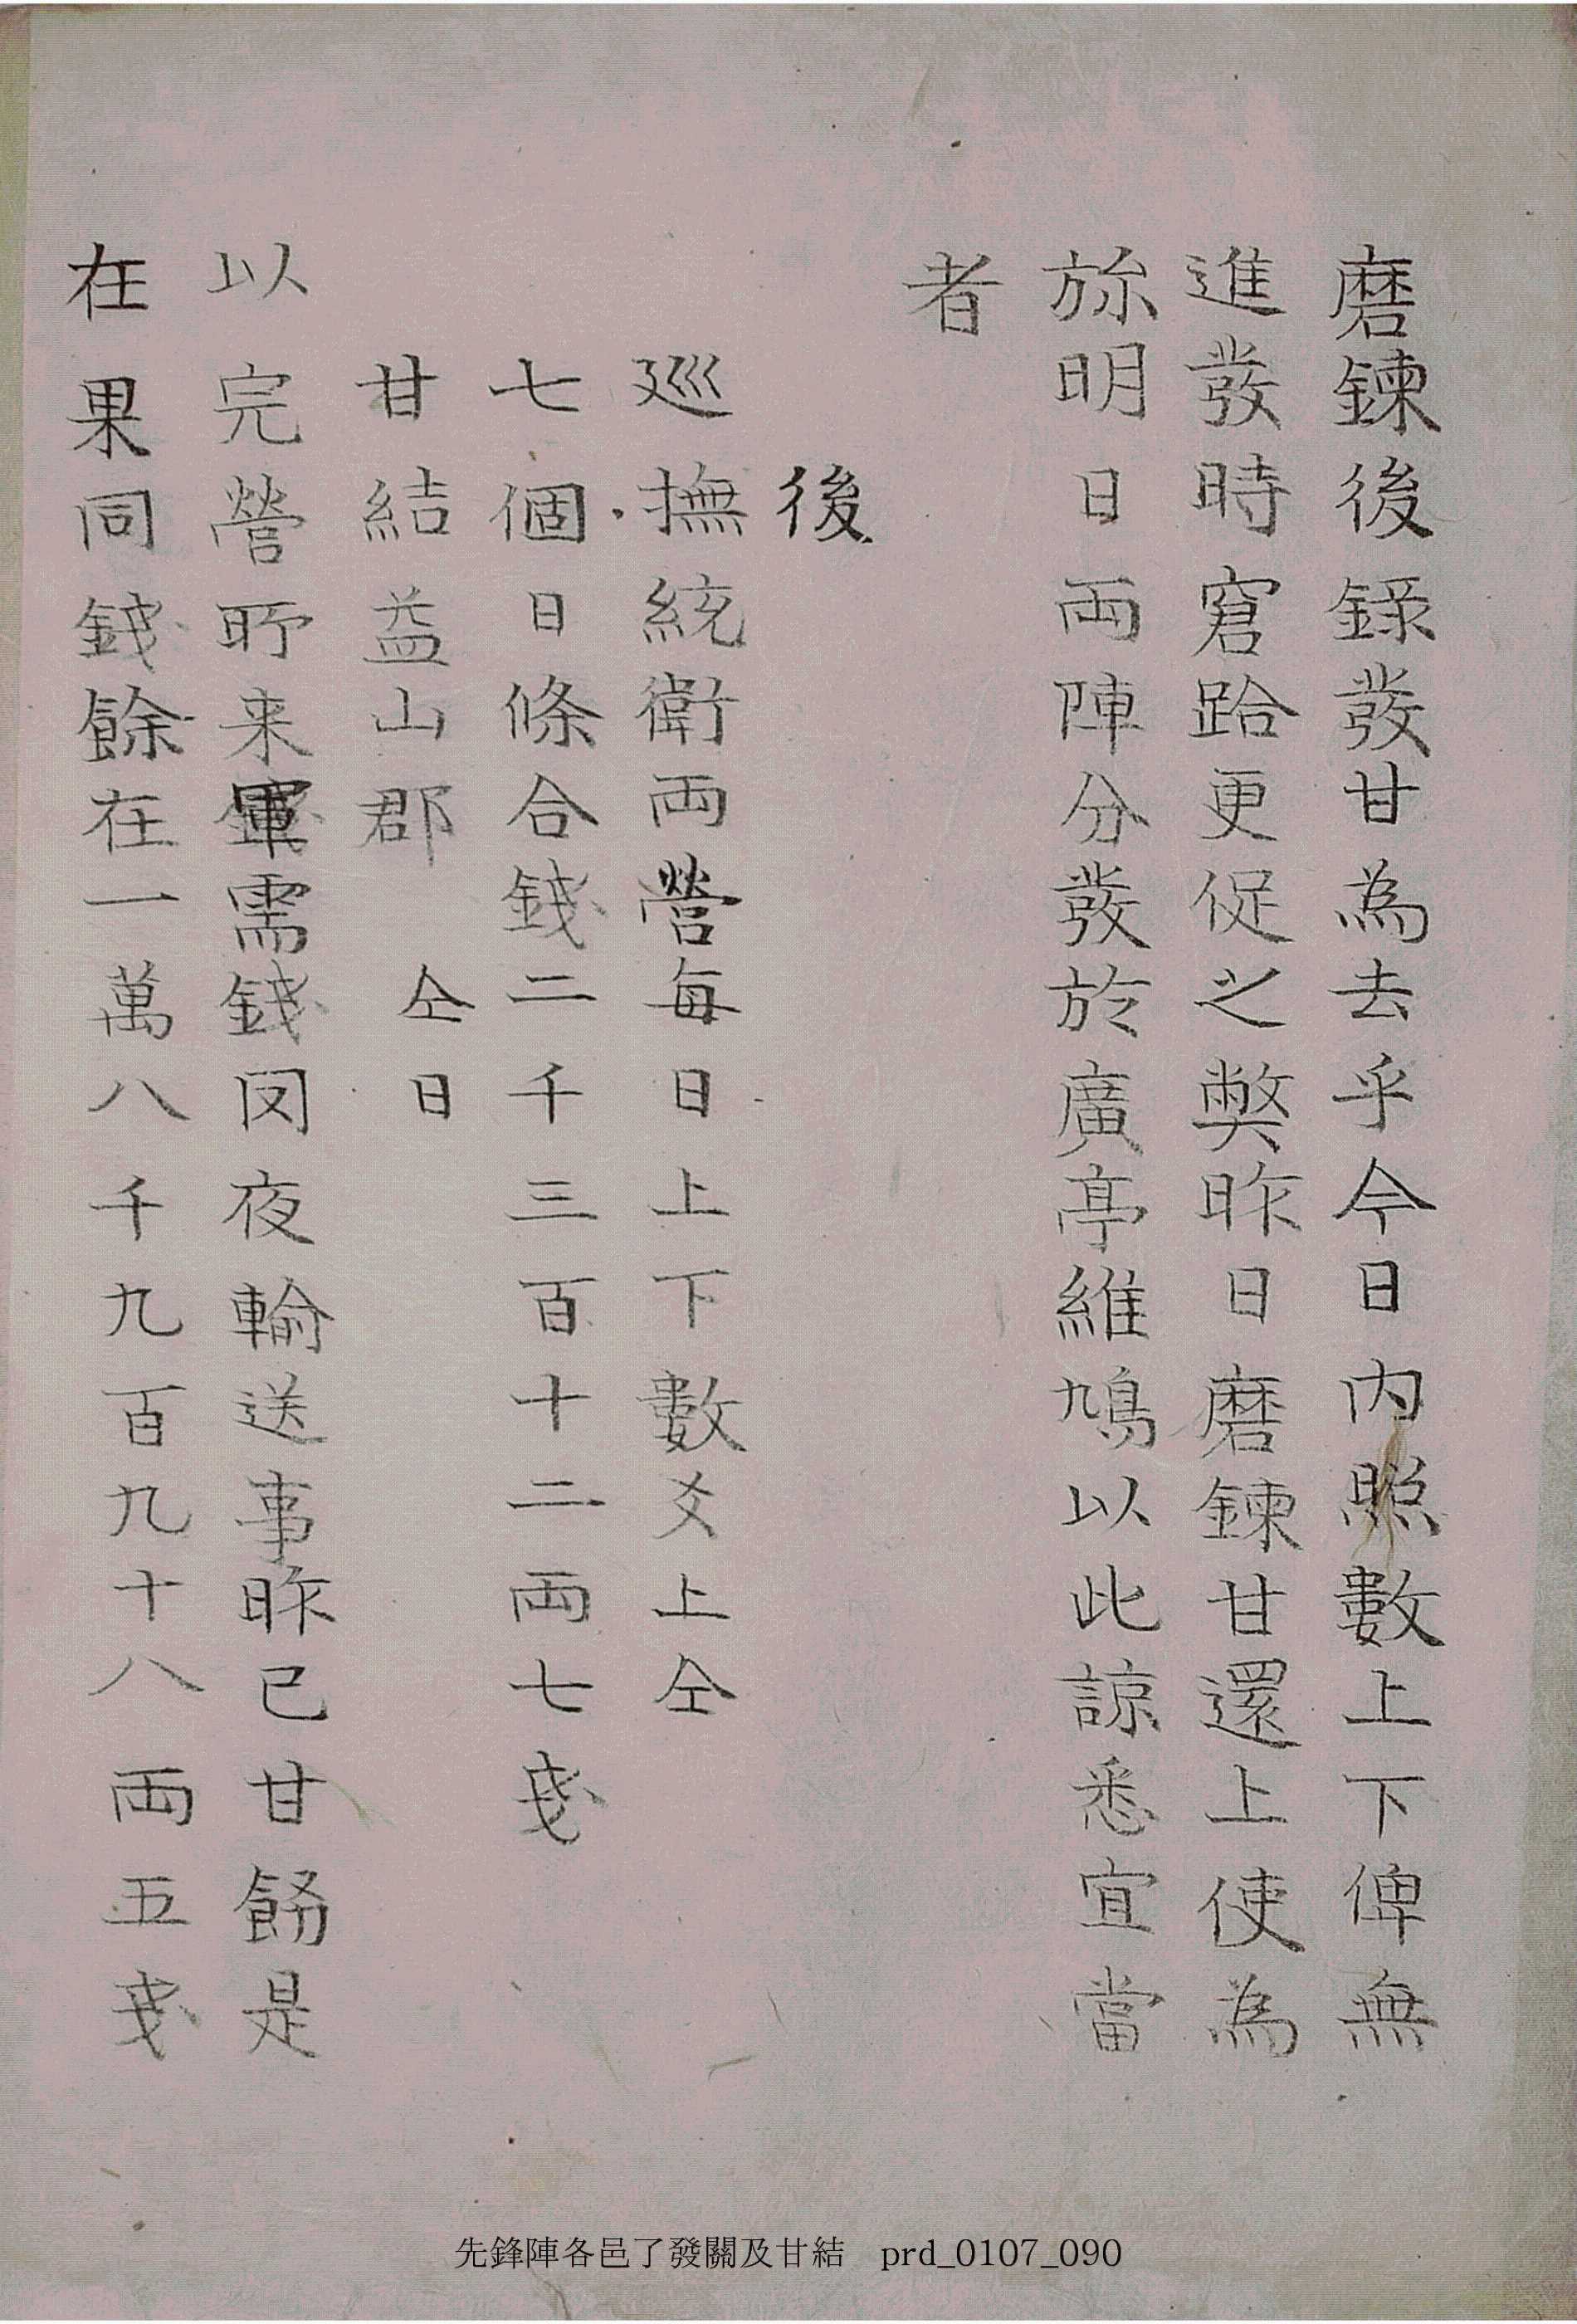 磨鍊後錄發甘為去乎今日內照數上下俾無
進發時窘跲更促之弊昨日磨鍊甘還上使為
旀明日両陣分發於廣亭維鳩以此諒悉宜當
者
後
巡撫統衛両營每日上下數爻上仝
七個日條合錢二千三百十二両七戔
甘結益山郡 仝日
以完營所来軍需錢罔夜輸送事昨已甘飭是
在果同錢餘在一萬八千九百九十八両五戔
先鋒陣各邑了發關及甘結 prd_0107_090